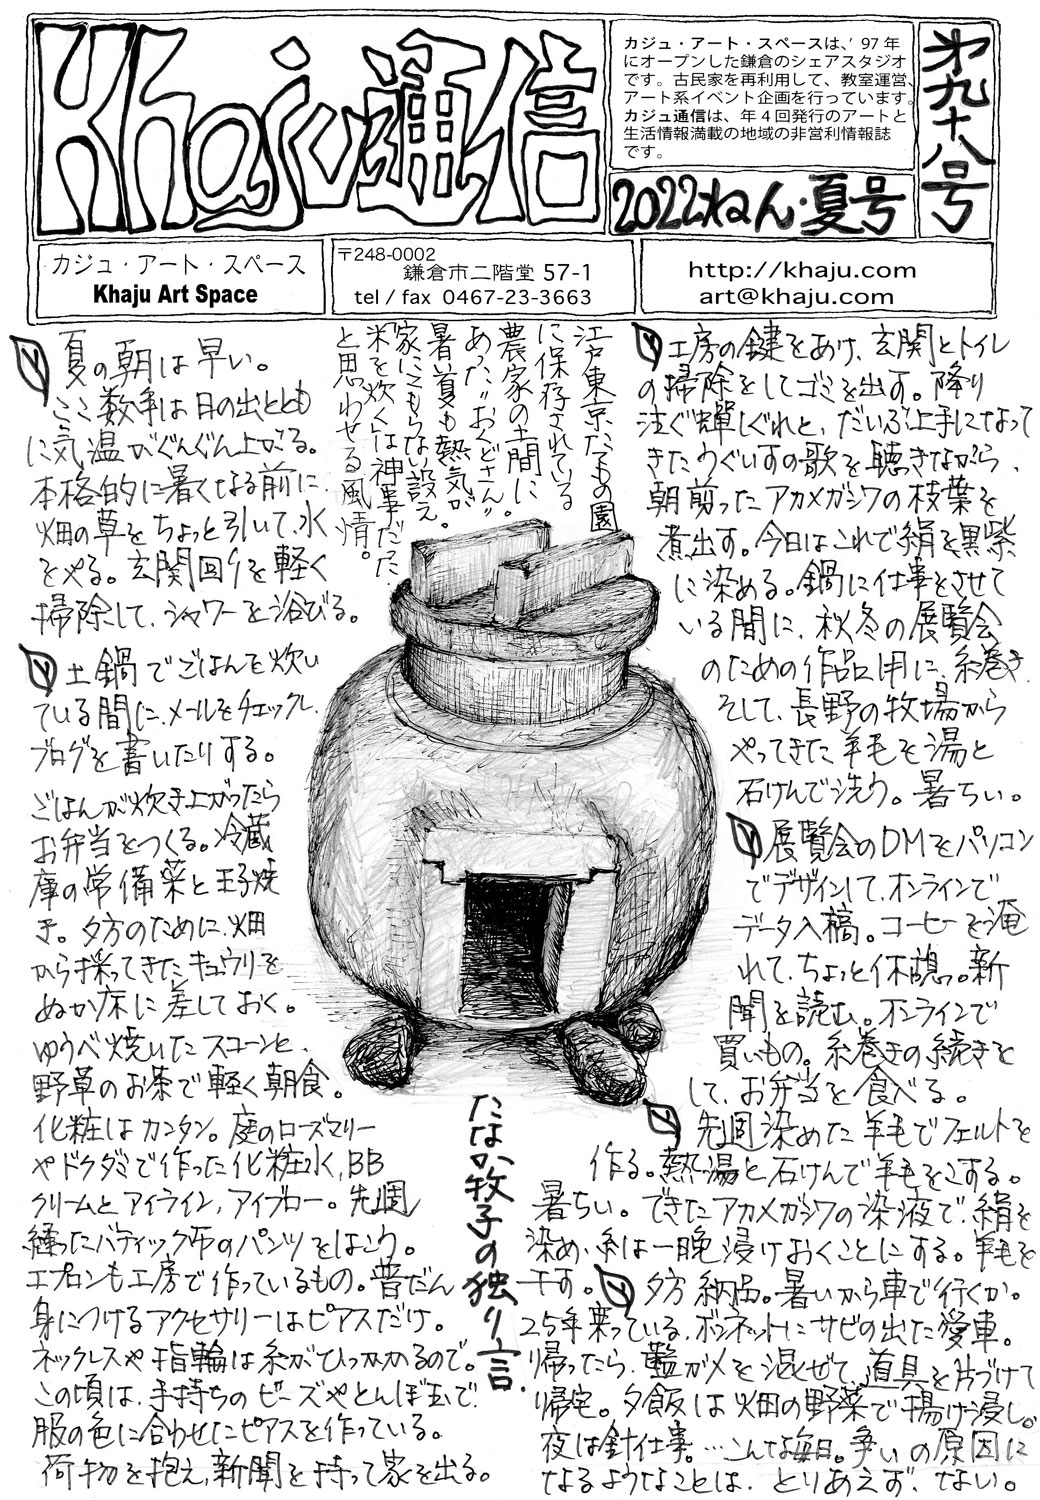 Khaju通信
カジュ・アート・スペースは、'97年
にオープンした鎌倉のシェアスタジオ
です。古民家を再利用して、教室運営、
アート系イベント企画を行っています。
カジュ通信は、年4回発行のアートと
生活情報満載の地域の非営利情報誌
です。
2022ねん・夏号
第九十八号
カジュ・アート・スペース
Khaju Art Space
〒248-0002
鎌倉市二階堂 57-1
tel / fax 0467-23-3663
http://khaju.com
art@khaju.com
夏の朝は早い。
ここ数年は日の出ととも
に気温がぐんぐん上がる。
本格的に暑くなる前に
畑の草をちょっと引いて、水
をやる。玄関回りを軽く
掃除して、シャワーを浴びる。
土鍋でごはんを炊い
ている間に、メールをチェックし、
ブログを書いたりする。
ごはんが炊き上がったら
お弁当をつくる。冷蔵
庫の常備菜と玉子焼
き。夕方のために、畑
から採ってきたキュウリを
ぬか床に差しておく。
ゆうべ焼いたスコーンと、
野草のお茶で軽く朝食。
化粧はカンタン。庭のローズマリー
やドクダミで作った化粧水、BB
クリームとアイライン、アイブロー。先週
縫ったバティック布のパンツをはこう。
エプロンも工房で作っているもの。普だん
身につけるアクセサリーはピアスだけ。
ネックレスや指輪は糸がひっかかるので。
この頃は、手持ちのビーズやとんぼ玉で、
服の色に合わせたピアスを作っている。
荷物を抱え、新聞を持って家を出る。
江戸東京たてもの園
に保存されている
農家の土間に
あった"おくどさん"
暑い夏も熱気が
家にこもらない設え。
「米を炊く」は神事だった、
と思わせる風情。
たなか牧子の独り言。
工房の鍵をあけ、玄関とトイレ
の掃除をしてゴミを出す。降り
注ぐ蝉しぐれと、だいぶ上手になって
きたうぐいすの歌を聴きながら、
朝剪ったアカメガシワの枝葉を
煮出す。今日はこれで絹を黒紫
に染める。鍋に仕事をさせて
いる間に、秋冬の展覧会
のための作品用に、糸巻き。
そして、長野の牧場から
やってきた羊毛を湯と
石けんで洗う。暑ちぃ。
展覧会のDMをパソコン
でデザインして、オンラインで
データ入稿。コーヒーを淹
れて、ちょっと休憩。新
聞を読む。オンラインで
買いもの。糸巻きの続きを
して、お弁当を食べる。
先週染めた羊毛でフェルトを
作る。熱湯と石けんで羊毛をこする。
暑ちぃ。できたアカメガシワの染液で、絹を
染め、糸は一晩浸けおくことにする。羊毛を
干す。夕方納品。暑いから車で行くか。
25年乗っている、ボンネットにサビの出た愛車。
帰ったら、藍がメを混ぜて、道具を片づけて
帰宅。夕飯は畑の野菜で揚げ浸し。
夜は針仕事。…こんな毎日。争いの原因に
なるようなことは、とりあえず、ない。